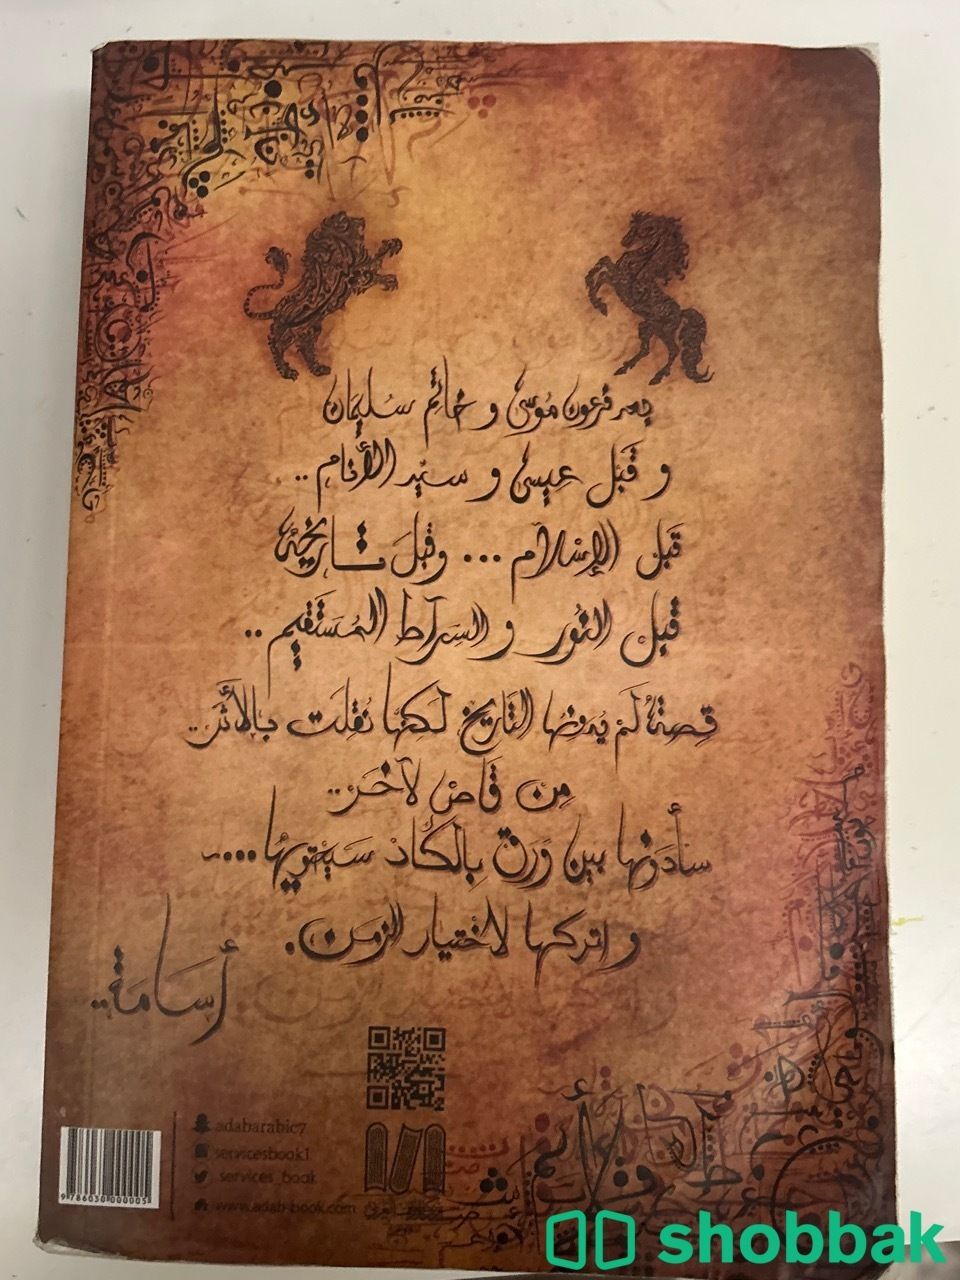 بعد فرعون مُوسى و خاتم سُليمان
و قَبْل عيسى و سيّد الأنام ..
قَبْل الإسْلام ... وقبلَ تاريخهُ
قَبْل النُور والسِرآط المُستَقيم ..
قِصةٌ لَمْ يدونها التاريخ لَكنها نُقِلَت بالأثَر..
مِن قَاصْ لآخَر..
سأدونها بين وَرقْ بِالكَادْ سَيحتويها....
و اتركها لاختيار الزمن.
أسَامَة..
adabarabic7
servicesbook1
services_book
www.adab-book.com
9 786030 000005
shobbak